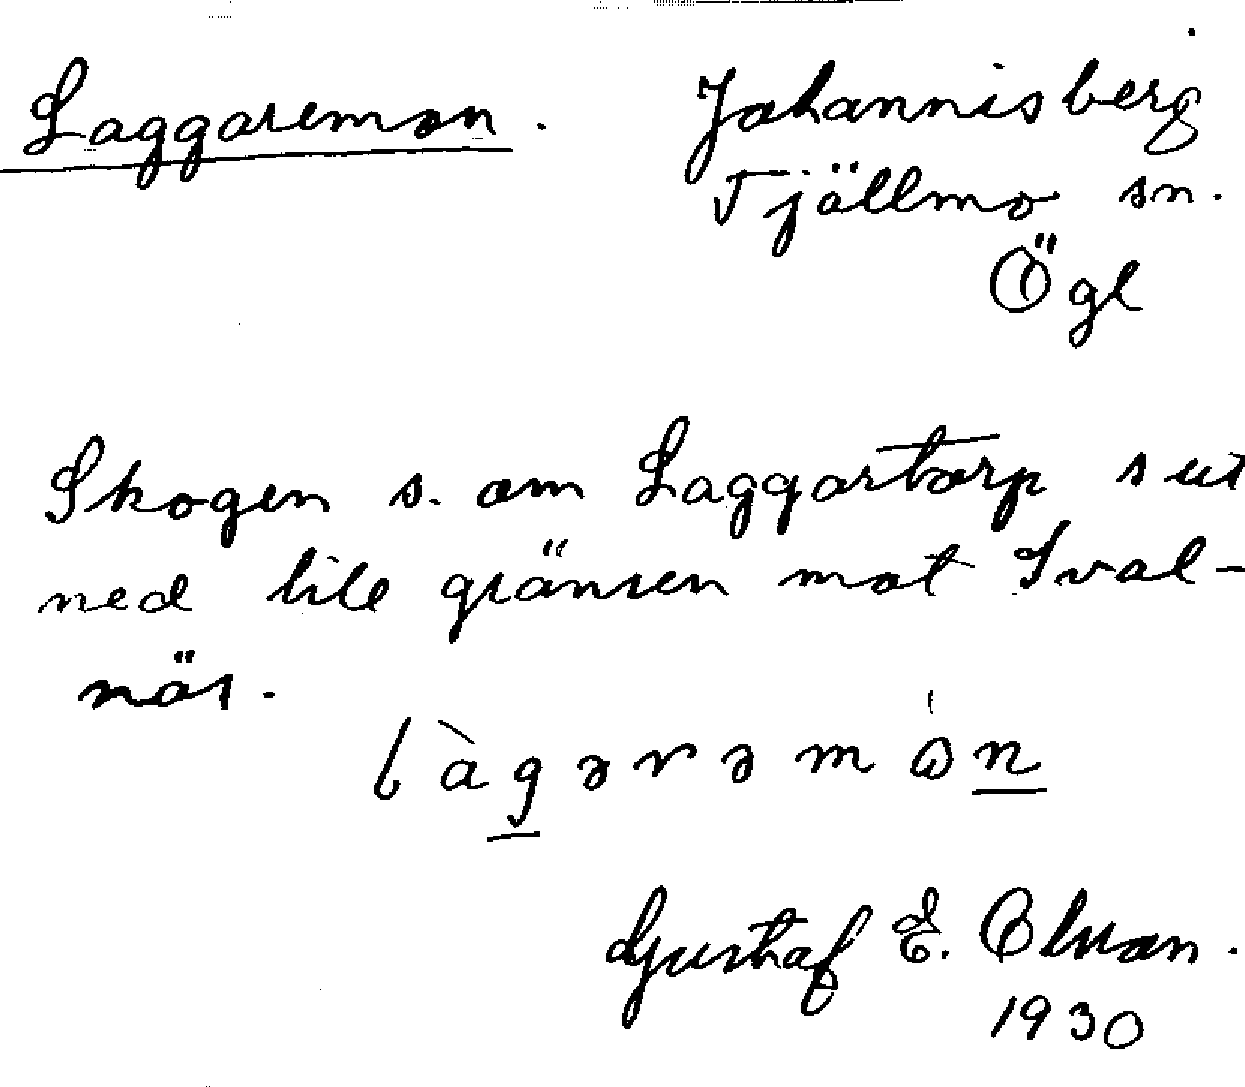 Laggaremon. Johannisberg
Tjällmo sn.
Ögl
Skogen s. om Laggartorp
ned till gränsen mot Sval-
näs.
làgərəmón
Gustaf E. Olsson.
1930